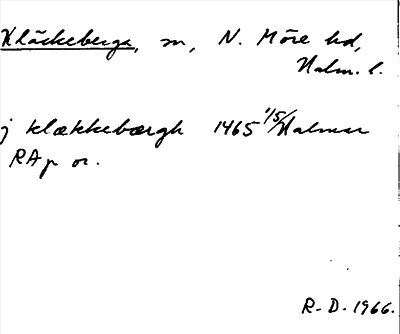 Kläckeberga, sn, N. Möre hd,
Kalm. l.
j klækkebærgh 1465 1/5 Kalmar
RAp or.
R-D. 1966.